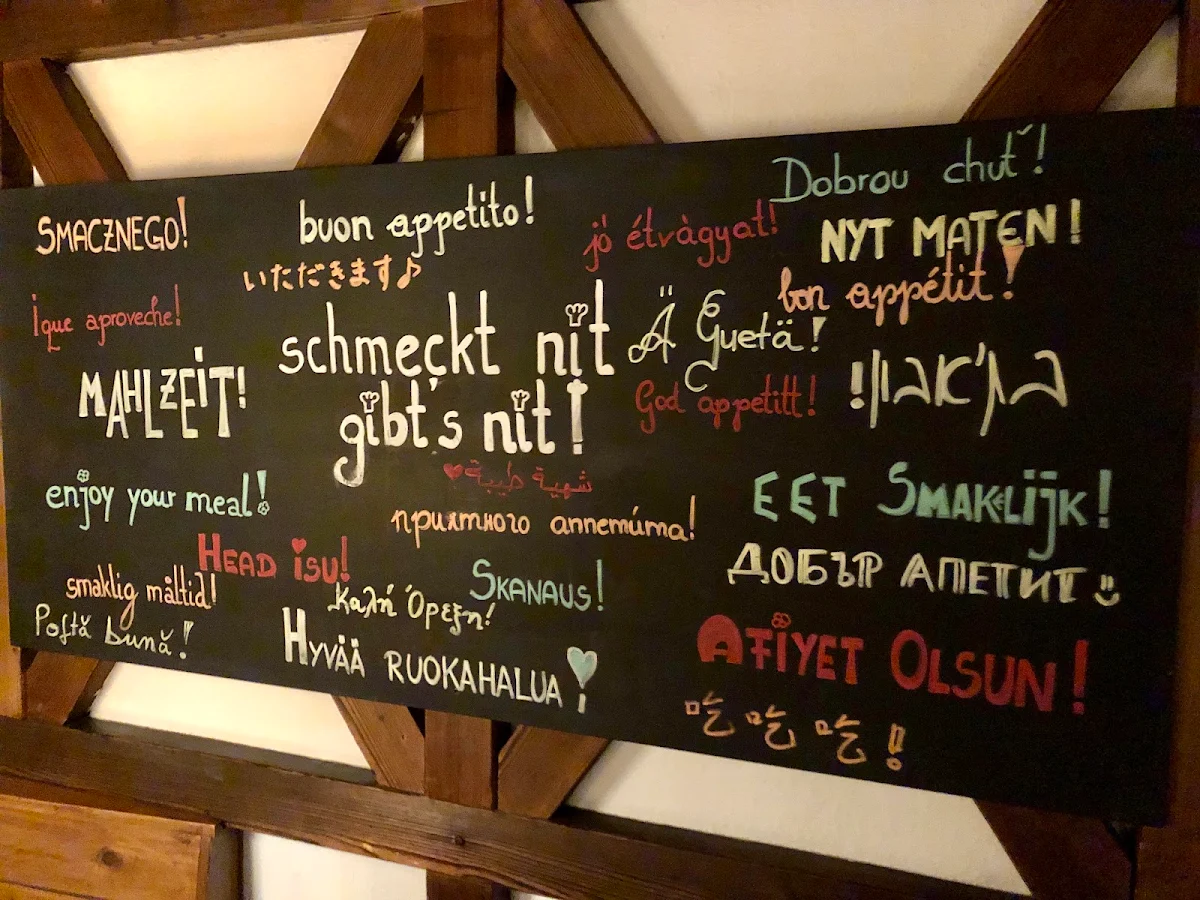 Dobrou chuť!
SMACZNEGO!
buon appetito!
jó étvàgyat!
NYT MATEN!
いただきます♪
bon appétit!
¡que aproveche!
schmeckt nit
gibt's nit!
Ä Guetä!
MAHLZEIT!
God appetitt!
בתיאבון!
شهية طيبة ♥
enjoy your meal!
EET SMAKLIJK!
приятного аппетита!
HEAD ISU!
ДОБЪР АПЕТИТ
smaklig måltid!
Καλή Όρεξη!
SKANAUS!
Poftă bună!
HYVÄÄ RUOKAHALUA!
AFİYET OLSUN!
吃吃吃!